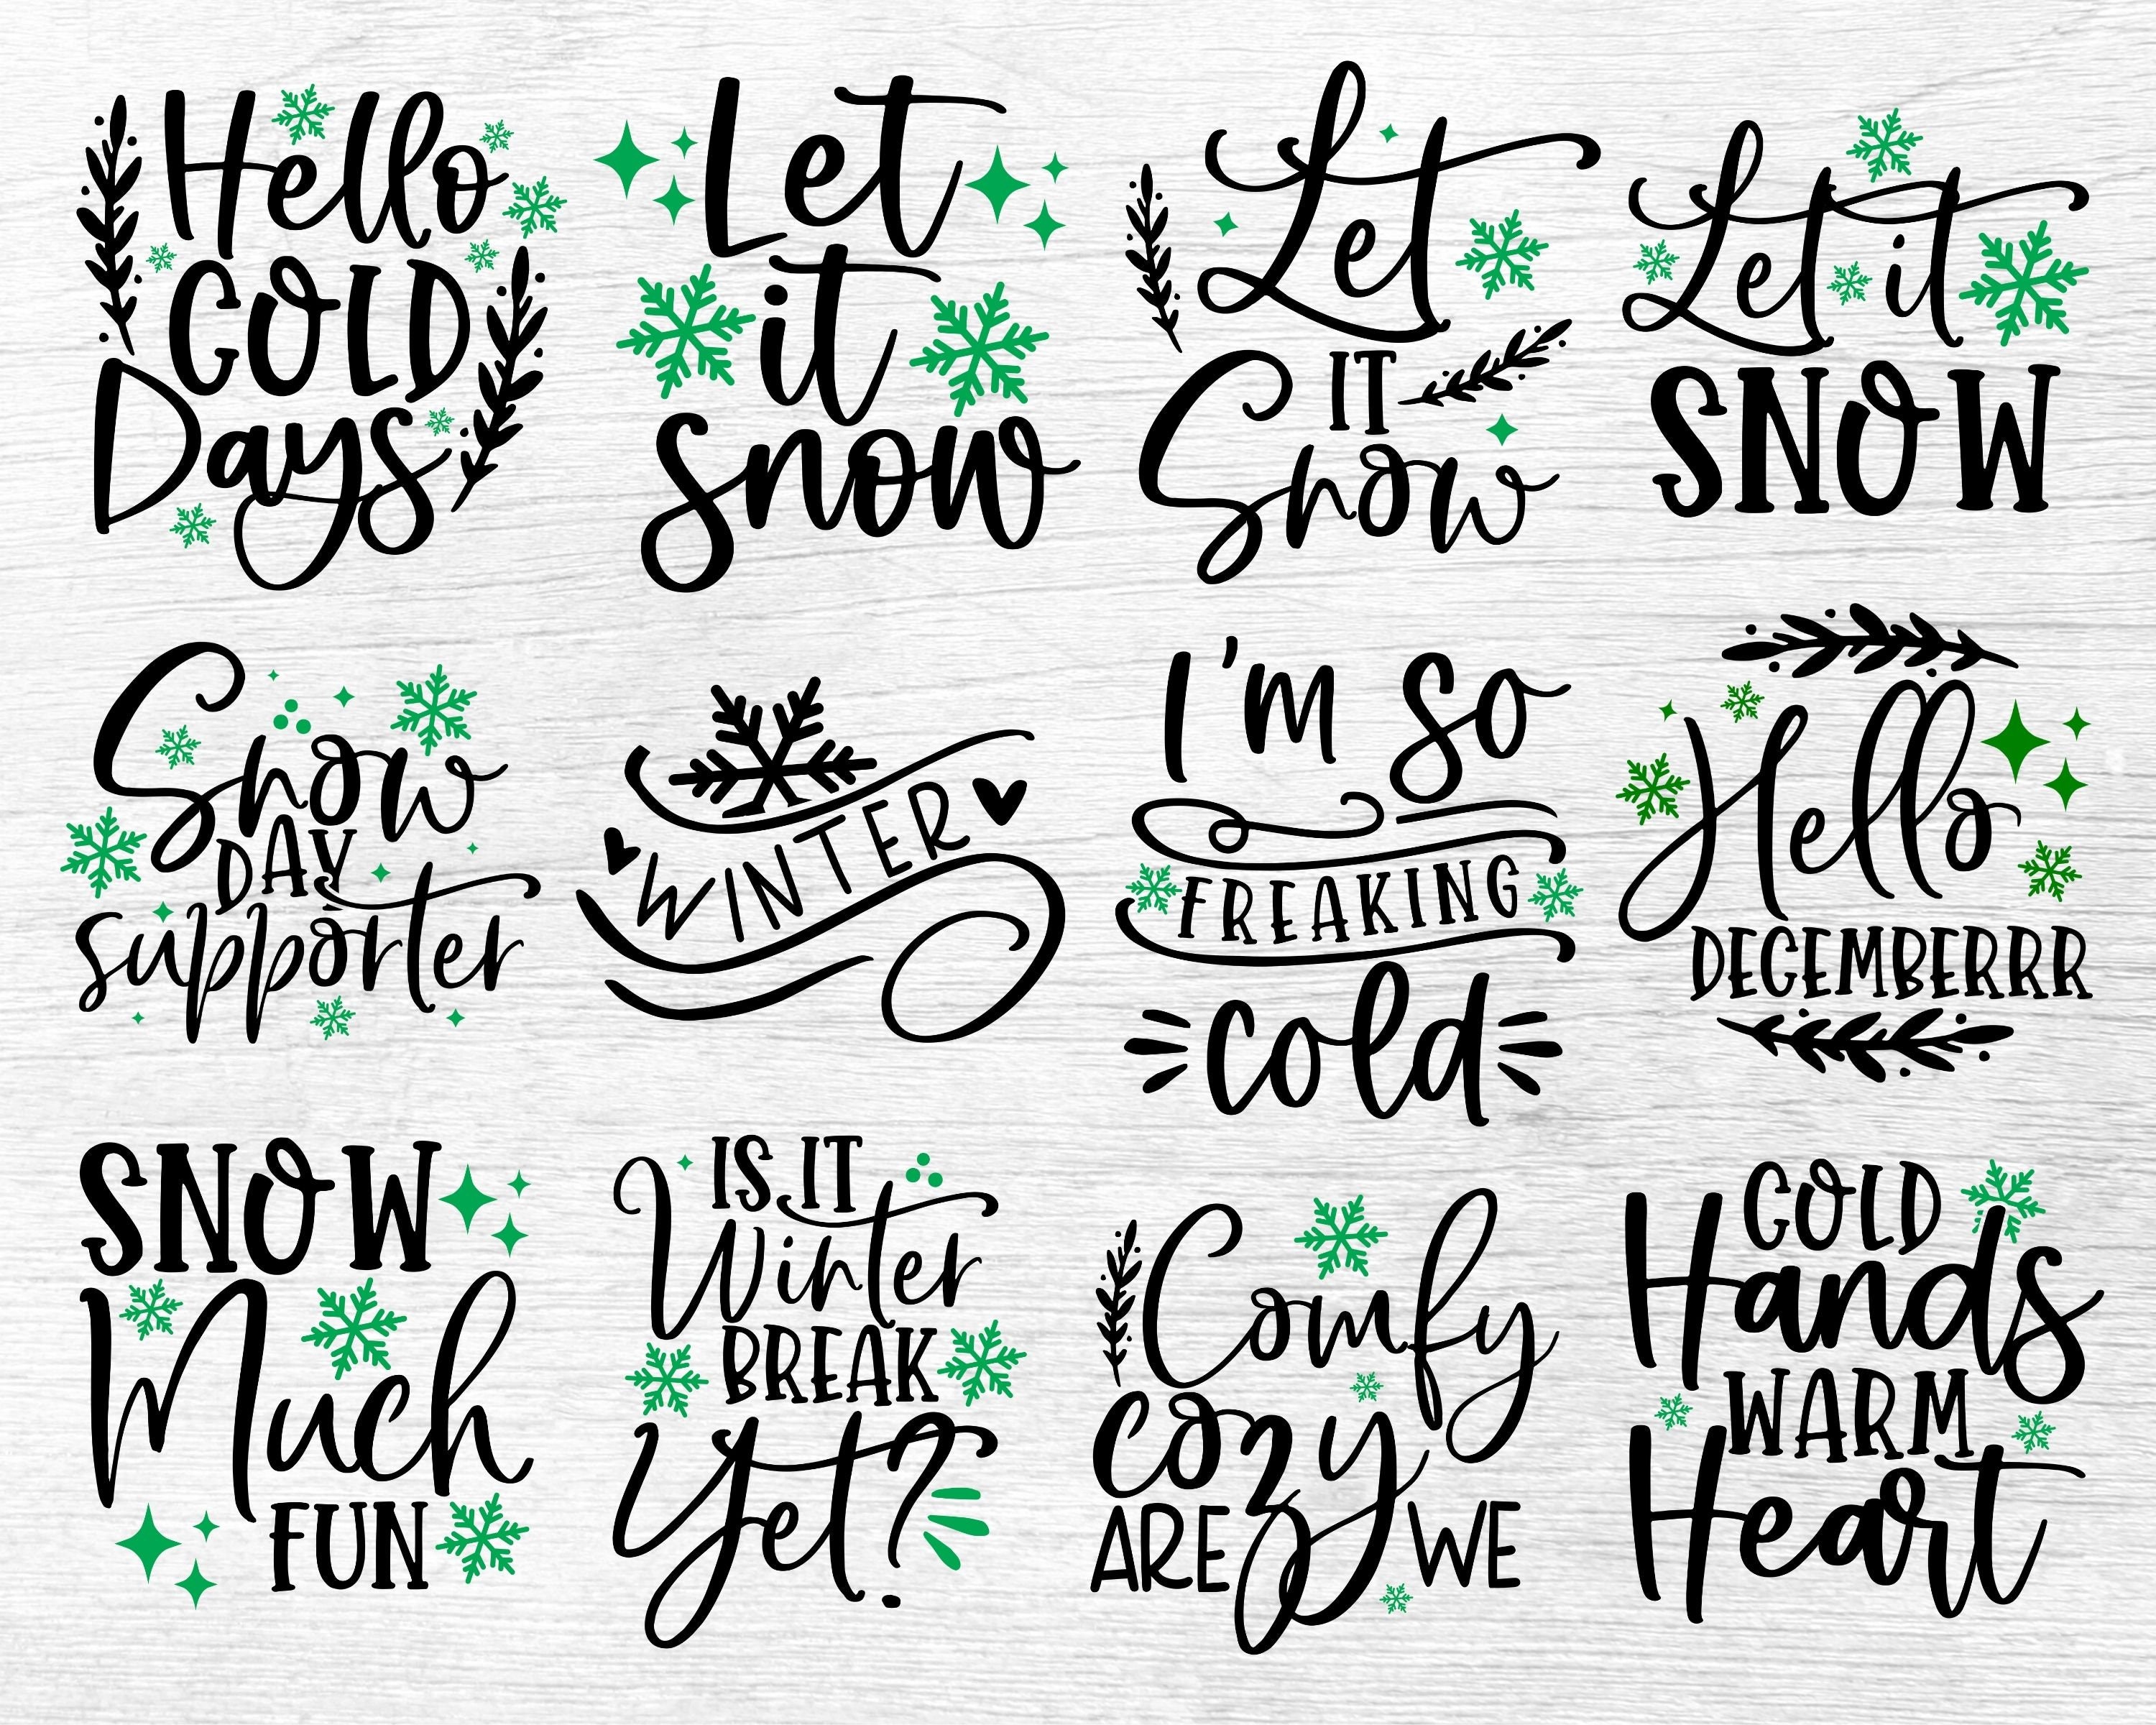 Hello
COLD
Days
Let
it
snow
Let
IT
Snow
Let it
SNOW
Snow
DAY
supporter
WINTER
I'm so
FREAKING
cold
Hello
DECEMBERRR
SNOW
Much
FUN
IS IT
Winter
BREAK
Yet?
Comfy
cozy
ARE WE
COLD
Hands
WARM
Heart